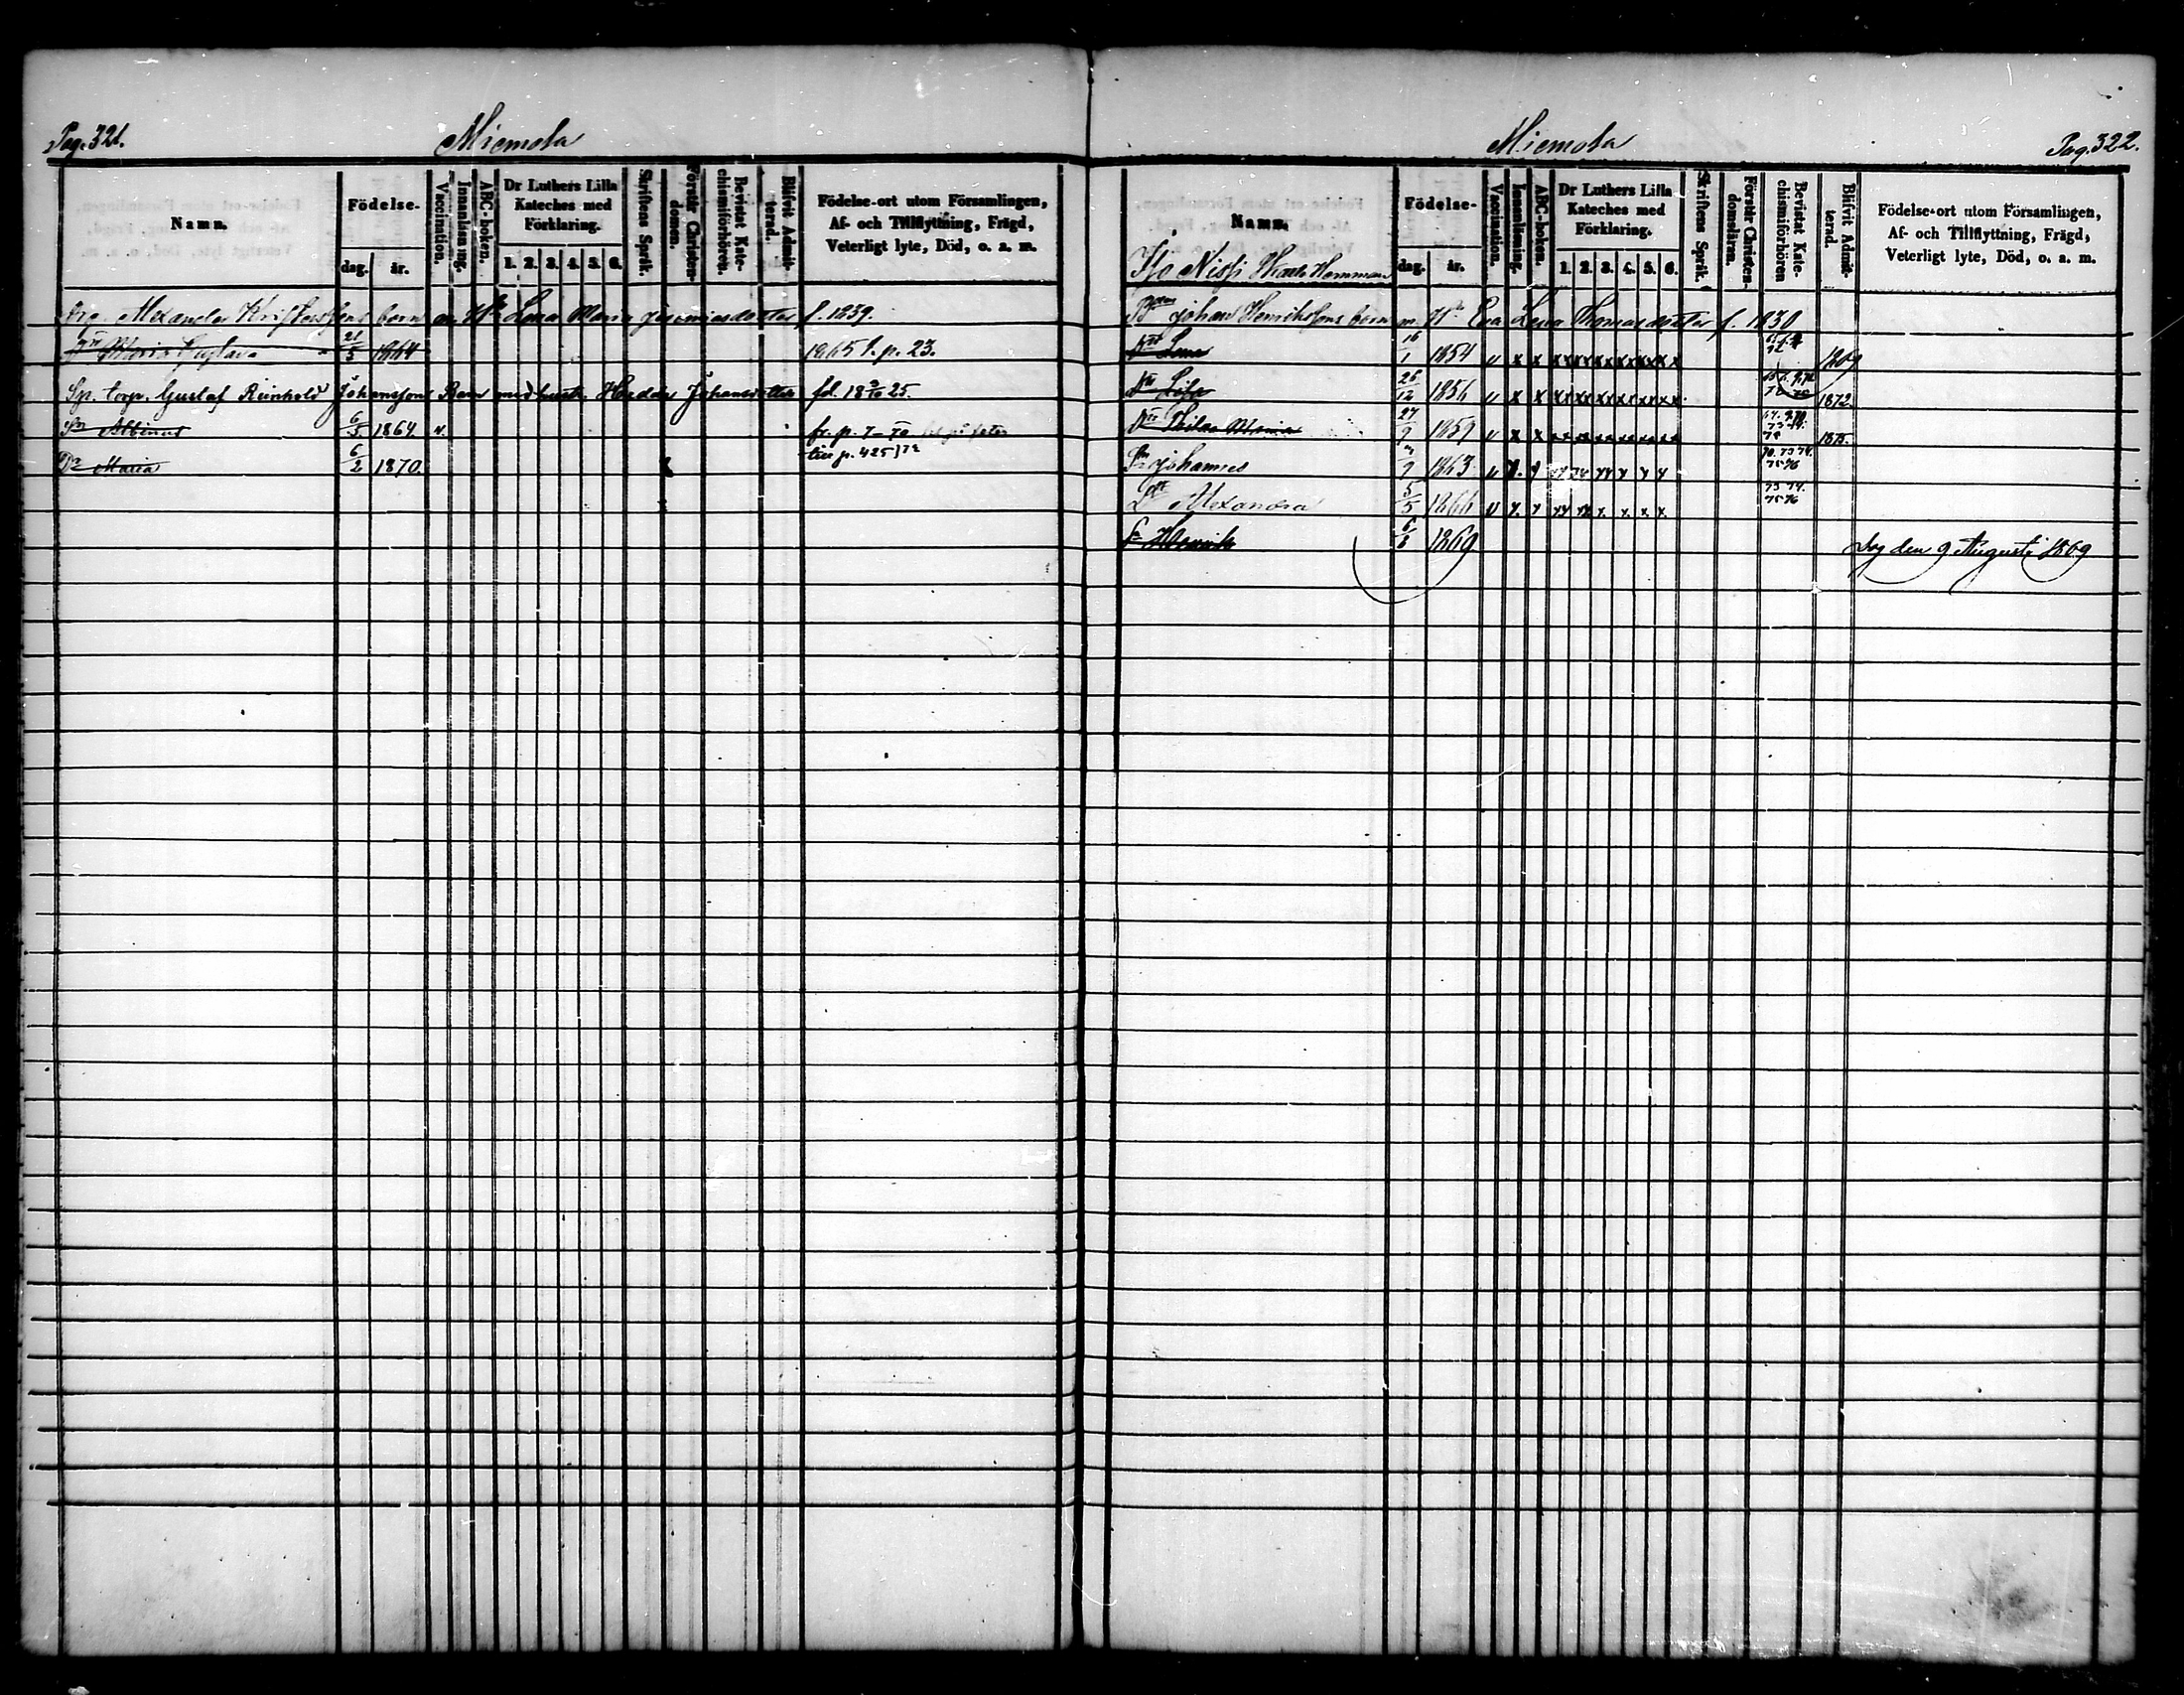 Pag. 321.
Miemola
Namn.
Födelse-
dag.
år.
Vaccination.
Innanläsning.
ABC-boken.
Dr Luthers Lilla
Kateches med
Förklaring.
1. 2. 3. 4. 5. 6.
Skriftens Språk.
Förstår Christen-
domen.
Bevistat Kate-
chismiförhören.
Blifvit Admit-
terad.
Födelse-ort utom Församlingen,
Af- och Tillflyttning, Frägd,
Veterligt lyte, Död, o. a. m.
Alexander Kristersons barn m. Hu Lena Maria Jeremiasdotter f. 1839.
Maria Gustava 21/5 1864 1865 l. p. 23.
Sp. torp. Gustaf Reinhold Johanssons Barn med hust. Hedda Johansdotter fd. 18 3/10 25.
Sn Albinus 6/5 1864. v. fr. p. 7-70
Dr Maria 6/2 1870. p. 425 / 72
Miemola
Pag. 322.
Namn.
Födelse-
dag.
år.
Vaccination.
Innanläsning.
ABC-boken.
Dr Luthers Lilla
Kateches med
Förklaring.
1. 2. 3. 4. 5. 6.
Skriftens Språk.
Förstår Christen-
domsläran.
Bevistat Kate-
chismiförhören
Blifvit Admit-
terad.
Födelse-ort utom Församlingen,
Af- och Tillflyttning, Frägd,
Veterligt lyte, Död, o. a. m.
Iso Nissi Hemman
Johan Henrikssons barn m. Hu Eva Lena Thomasdotter f. 1830
Dtr Lena 16/1 1854 v x x xx xx xx xx xx xx 1869
Dtr Lisa 26/12 1856 v x x xx xx xx xx xx xx 1872.
Dtr Maria 27/9 1859 v x x xx xx xx xx xx xx 1875.
Sn Johannes 1863 v x. x xx xx xx x x x 75 76
Dtr Alexandra 5/5 1866 v x. x xx xx x. x. x. x. 73 74. 75 76
Sn Henrik 6/8 1869 dog den 9 Augusti 1869